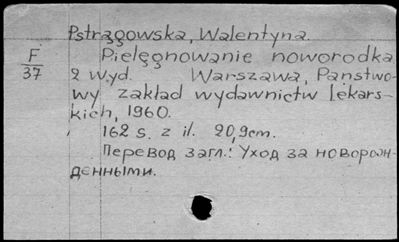 Pstrągowska, Walentyna.
F
37
Pielęgnowanie noworodka
2 wyd. Warszawa, Państwo-
wy zakład wydawnictw lekars-
kich, 1960.
162 s. z il. 20,9cm.
Перевод загл.: Уход за новорож-
денными.